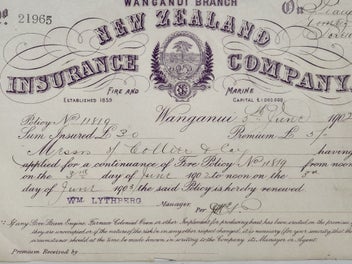 WANGANUI BRANCH
No. 21965
On
NEW ZEALAND
INSURANCE COMPANY
FIRE AND MARINE
ESTABLISHED 1859
CAPITAL £1,000,000
Wanganui 5th June 190
Policy No 11819
Sum Insured £30 Premium £ 5/-
Messrs Collier & Co having
applied for a continuance of Fire Policy No 11819 from noon
on the 3rd day of June 1902 to noon on the 3rd
day of June 1903 the said Policy is hereby renewed
WM LYTHBERG Manager
Per
If any Fire Steam Engine Furnace Colonial Oven or other Apparatus for producing heat has been erated on the premises
they are unoccupied or if the nature of the risk be in any other respect changed, it is necessary for your security that the
circumstance should at the time be made known in writing to the Company its Manager or Agent.
Premium Received by